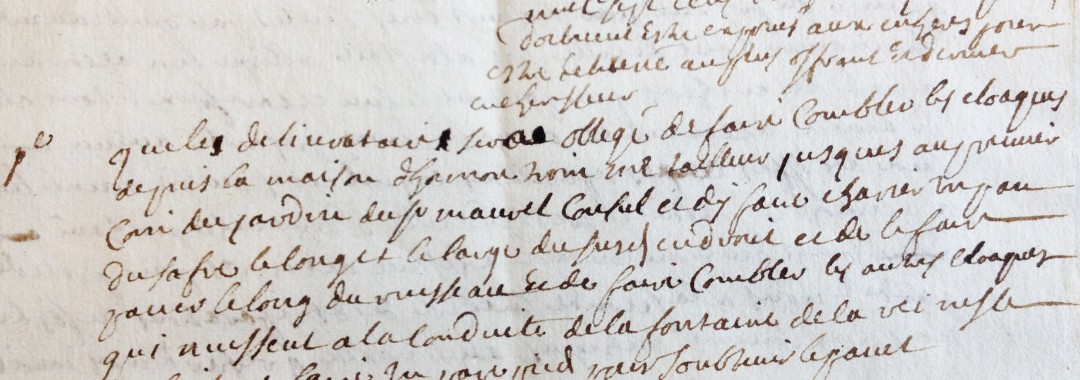 doibuent estre exposés aux encheres pour
estre deliuré au plus offrant et dernier
encherisseur
p.e Que les deliurataire sera obligé de faire Combler les cloaques
depuis la maison d'hamon me tailleur jusques au premier
Coin du jardin du sr mauvel Consul et dy faire charrier un pan
du safre le long et le large du susd endroit et de le faire
paver le long du ruisseau et de faire Combler les autres cloaques
qui nuissent a la Conduite de la fontaine de la
pour soubtenir le pavet